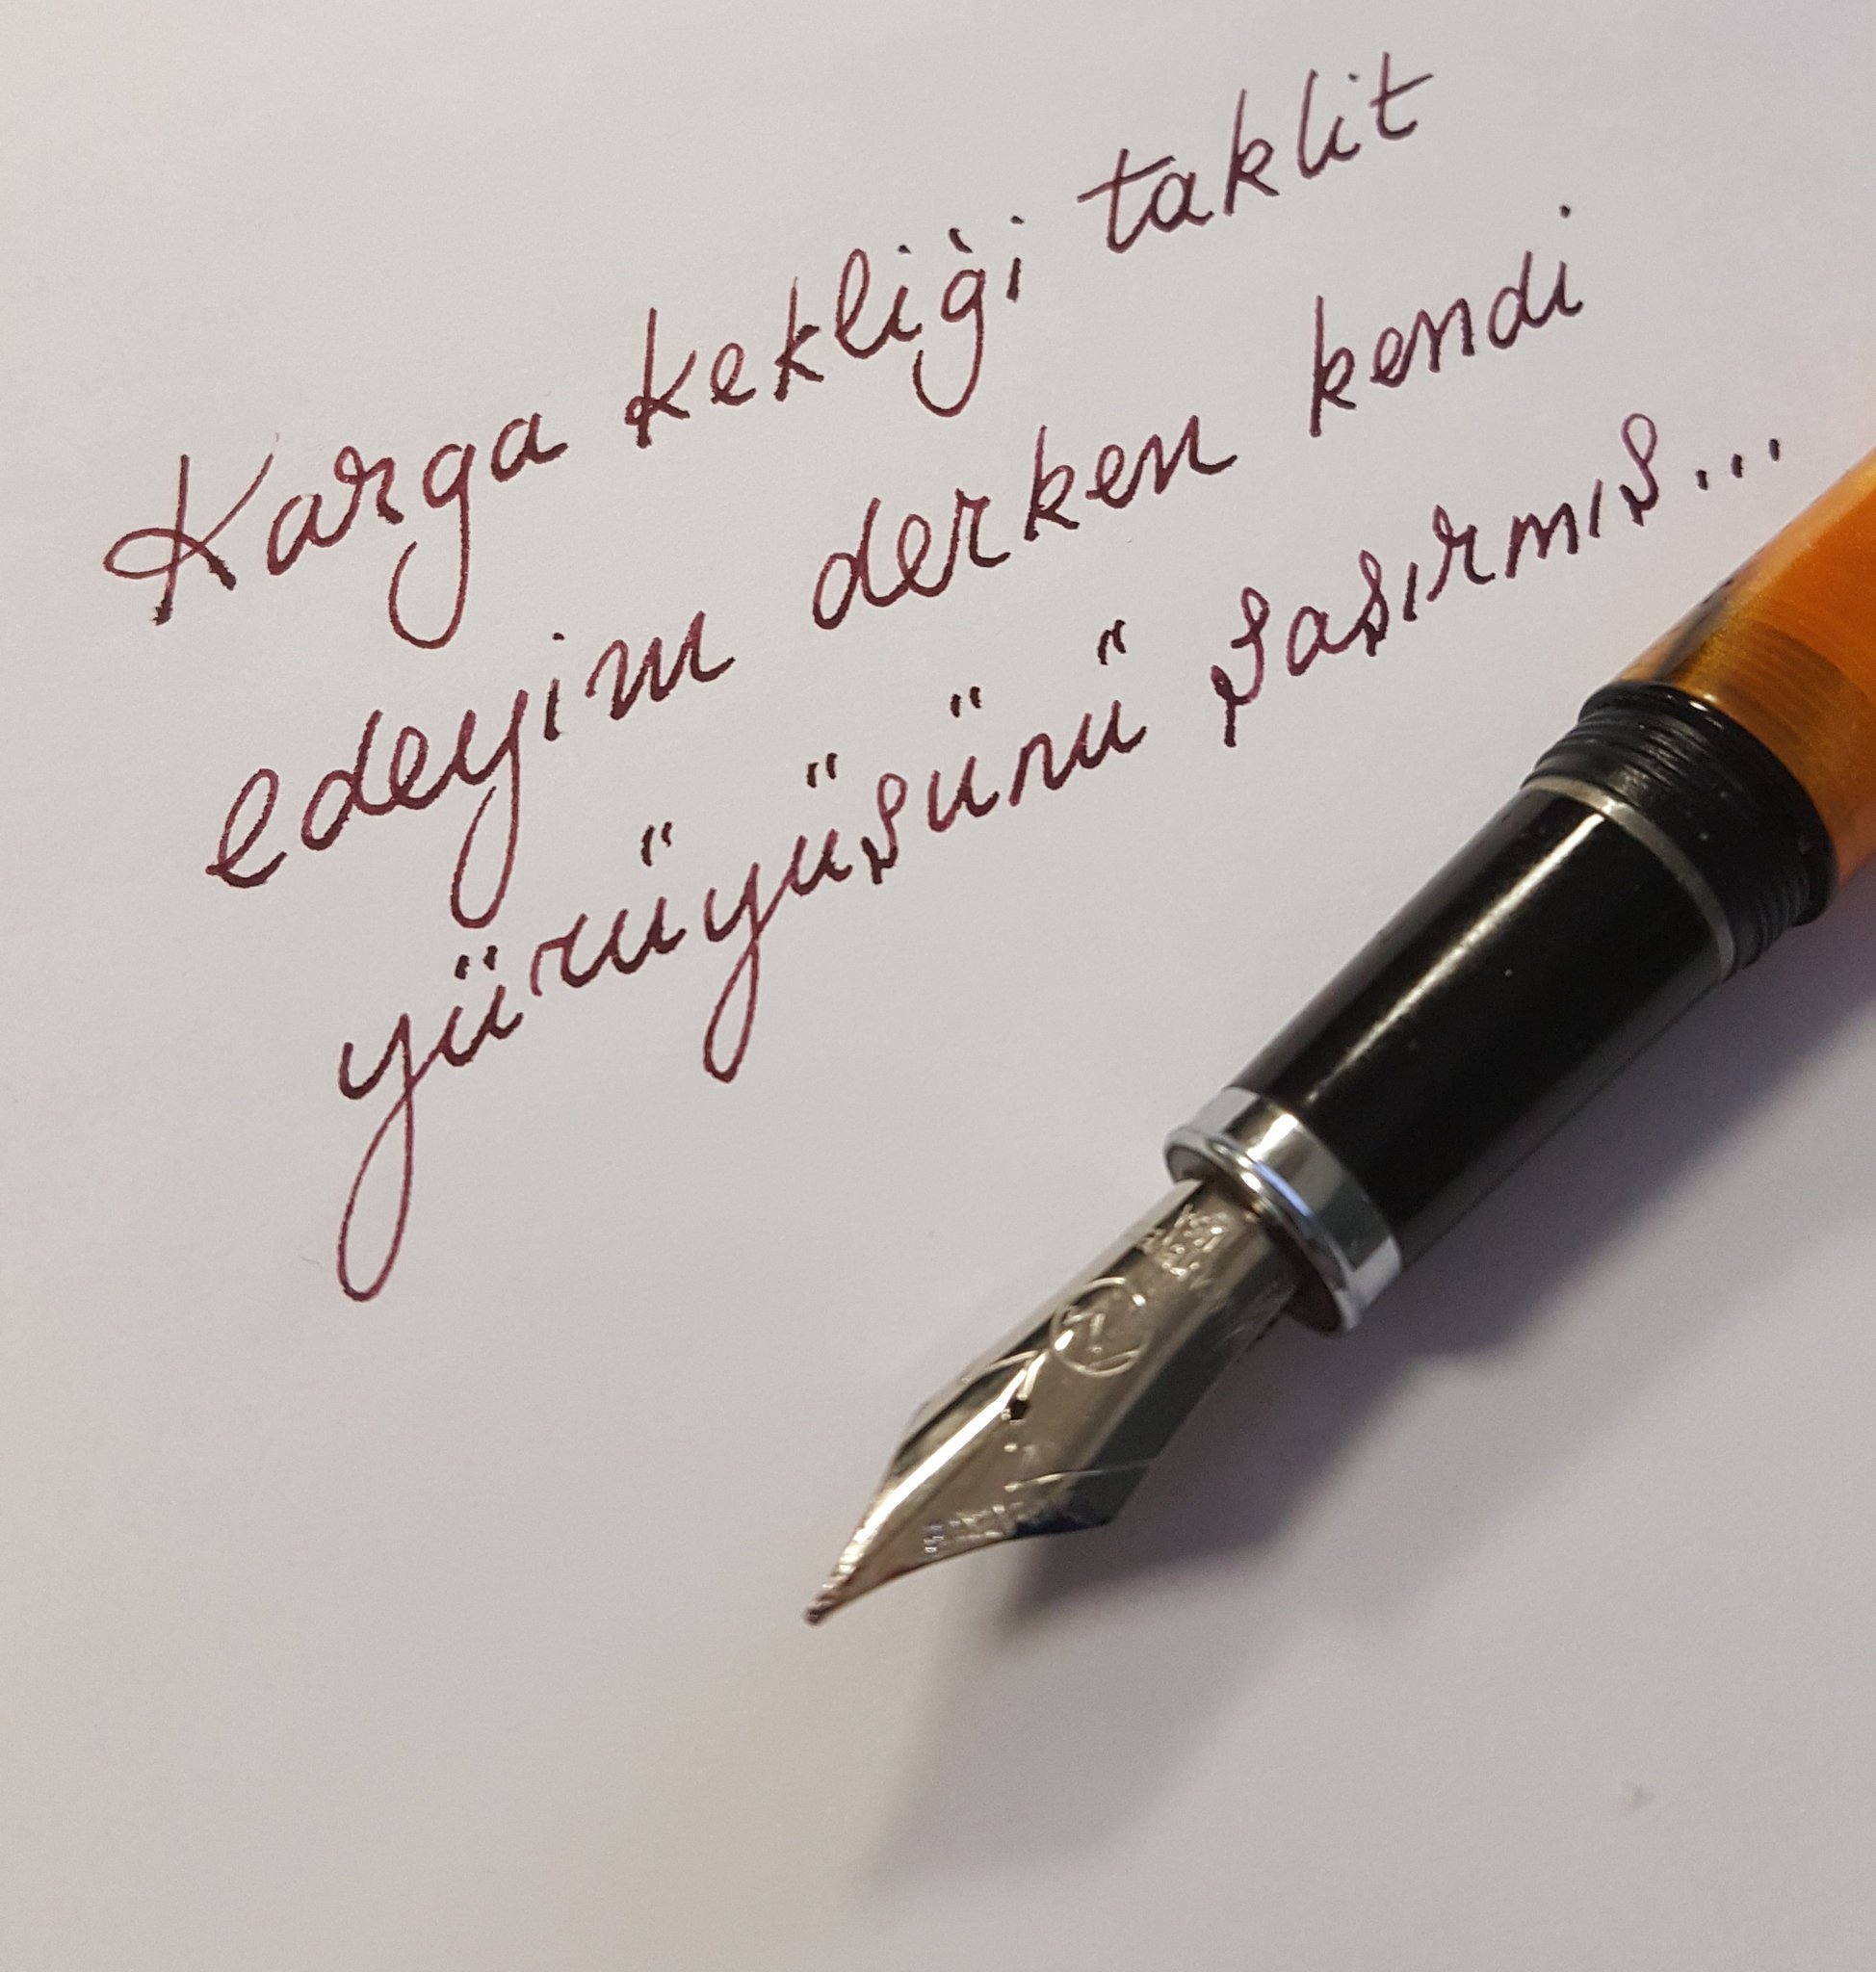 Karga kekliği taklit
edeyim derken kendi
yürüyüşünü şaşırmış...